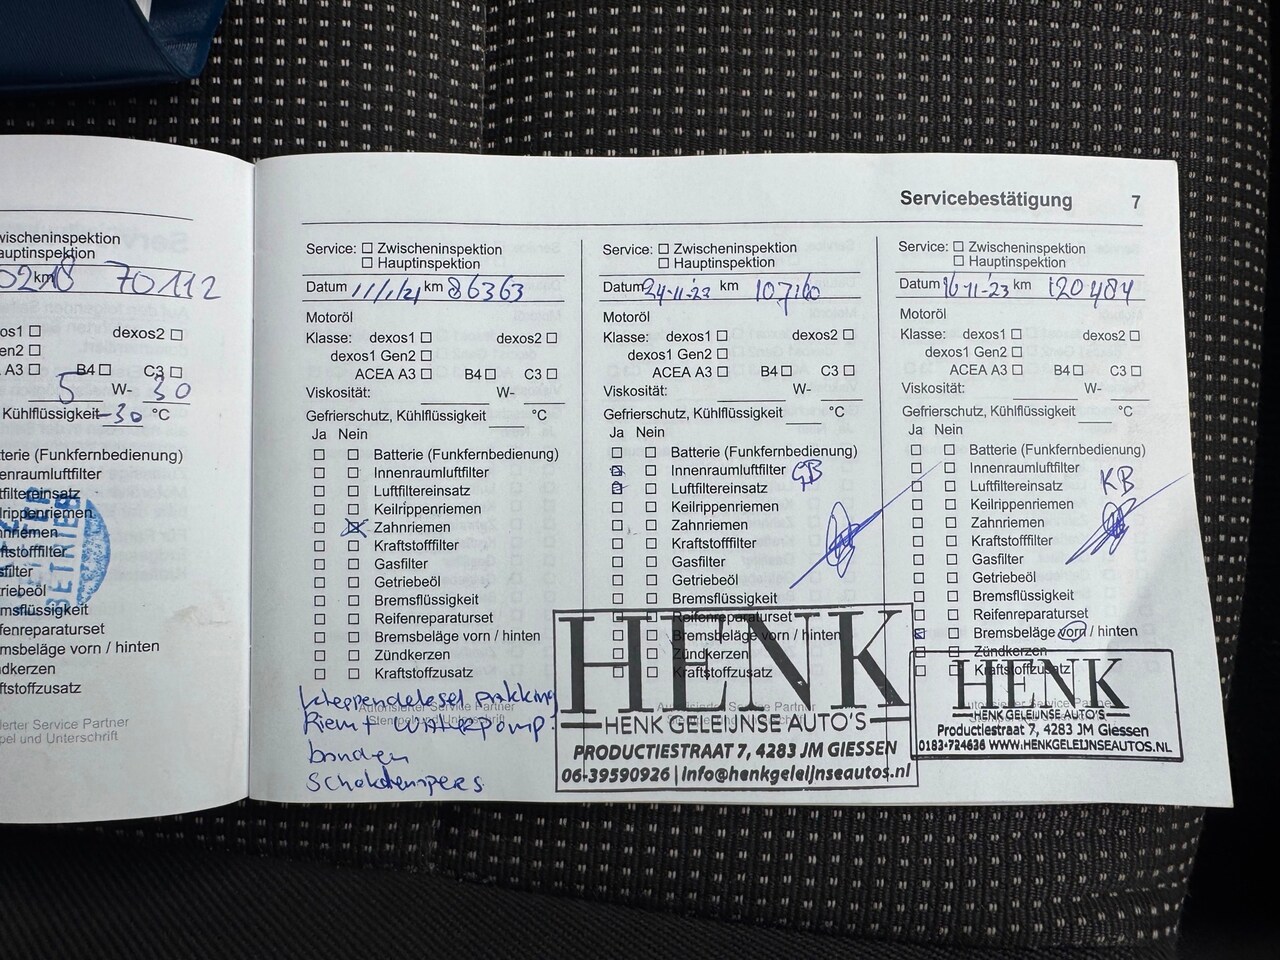 wischeninspektion
auptinspektion
km 70112
os1 ☐ dexos2 ☐
en2 ☐
A3 ☐ B4 ☐ C3 ☐
5 W- 30
Kühlflüssigkeit -30 °C
tterie (Funkfernbedienung)
nenraumluftfilter
ftfiltereinsatz
ilrippenriemen
hnriemen
ftstofffilter
sfilter
triebeöl
msflüssigkeit
ifenreparaturset
msbeläge vorn / hinten
ndkerzen
ftstoffzusatz
BETRIEB
ierter Service Partner
pel und Unterschrift
Servicebestätigung 7
Service: ☐ Zwischeninspektion
☐ Hauptinspektion
Datum 11/1/21 km 86363
Motoröl
Klasse: dexos1 ☐ dexos2 ☐
dexos1 Gen2 ☐
ACEA A3 ☐ B4 ☐ C3 ☐
Viskosität: W-
Gefrierschutz, Kühlflüssigkeit °C
Ja Nein
☐ ☐ Batterie (Funkfernbedienung)
☐ ☐ Innenraumluftfilter
☐ ☐ Luftfiltereinsatz
☐ ☐ Keilrippenriemen
☐ ☒ Zahnriemen
☐ ☐ Kraftstofffilter
☐ ☐ Gasfilter
☐ ☐ Getriebeöl
☐ ☐ Bremsflüssigkeit
☐ ☐ Reifenreparaturset
☐ ☐ Bremsbeläge vorn / hinten
☐ ☐ Zündkerzen
☐ ☐ Kraftstoffzusatz
Autorisierter Service Partner
Stempel und Unterschrift
kleppendeksel pakking
Riem + Waterpomp.
banden
Schokdempers
Service: ☐ Zwischeninspektion
☐ Hauptinspektion
Datum 24-11-22 km 107160
Motoröl
Klasse: dexos1 ☐ dexos2 ☐
dexos1 Gen2 ☐
ACEA A3 ☐ B4 ☐ C3 ☐
Viskosität: W-
Gefrierschutz, Kühlflüssigkeit °C
Ja Nein
☐ ☐ Batterie (Funkfernbedienung)
☒ ☐ Innenraumluftfilter
☒ ☐ Luftfiltereinsatz
☐ ☐ Keilrippenriemen
☐ ☐ Zahnriemen
☐ ☐ Kraftstofffilter
☐ ☐ Gasfilter
☐ ☐ Getriebeöl
☐ ☐ Bremsflüssigkeit
☐ ☐ Reifenreparaturset
☐ ☐ Bremsbeläge vorn / hinten
☐ ☐ Zündkerzen
☐ ☐ Kraftstoffzusatz
HENK
HENK GELEIJNSE AUTO'S
PRODUCTIESTRAAT 7, 4283 JM GIESSEN
06-39590926 | info@henkgeleijnseautos.nl
Service: ☐ Zwischeninspektion
☐ Hauptinspektion
Datum 16-11-'23 km 120484
Motoröl
Klasse: dexos1 ☐ dexos2 ☐
dexos1 Gen2 ☐
ACEA A3 ☐ B4 ☐ C3 ☐
Viskosität: W-
Gefrierschutz, Kühlflüssigkeit °C
Ja Nein
☐ ☐ Batterie (Funkfernbedienung)
☐ ☐ Innenraumluftfilter
☐ ☐ Luftfiltereinsatz KB
☐ ☐ Keilrippenriemen
☐ ☐ Zahnriemen
☐ ☐ Kraftstofffilter
☐ ☐ Gasfilter
☐ ☐ Getriebeöl
☐ ☐ Bremsflüssigkeit
☐ ☐ Reifenreparaturset
☒ ☐ Bremsbeläge vorn / hinten
☐ ☐ Zündkerzen
☐ ☐ Kraftstoffzusatz
HENK
HENK GELEIJNSE AUTO'S
Productiestraat 7, 4283 JM Giessen
0183-724636 WWW.HENKGELEIJNSEAUTOS.NL